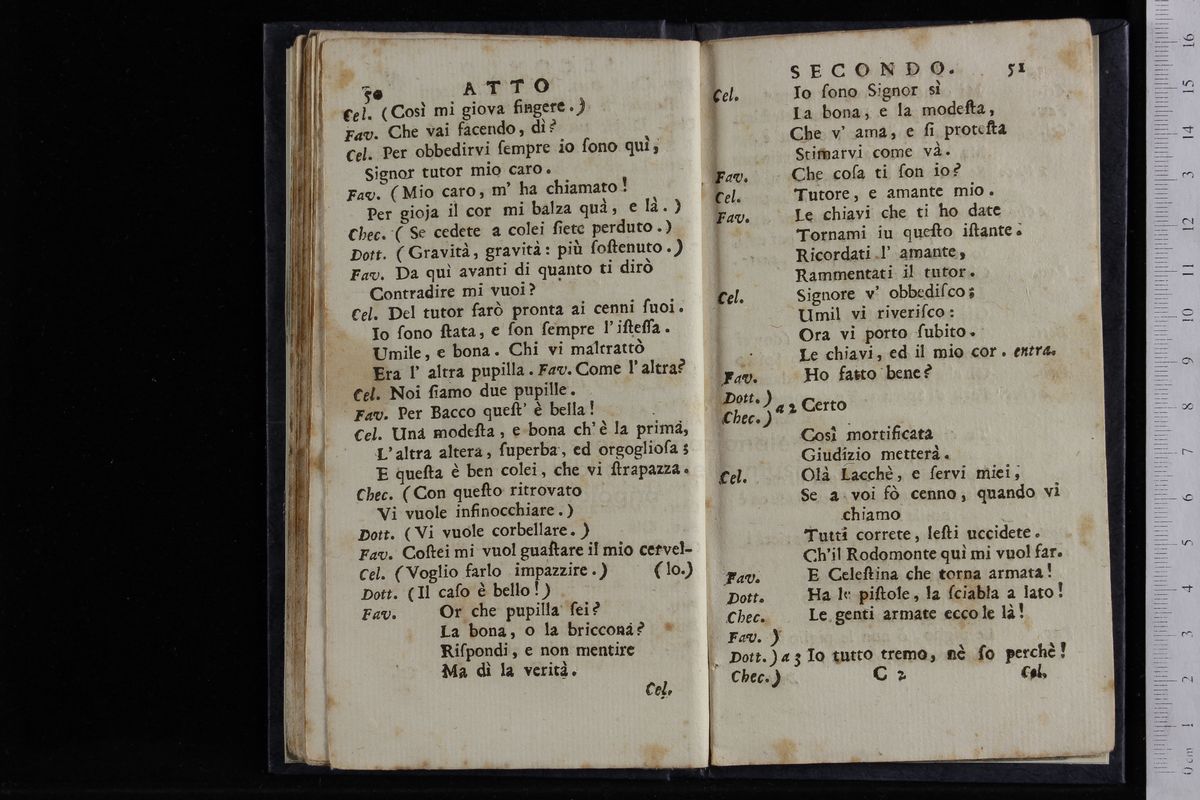 50 ATTO
Cel. (Così mi giova fingere.)
Fav. Che vai facendo, dì?
Cel. Per obbedirvi ſempre io ſono quì,
Signor tutor mio caro.
Fav. (Mio caro, m' ha chiamato!
Per gioja il cor mi balza quà, e là.)
Chec. (Se cedete a colei ſiete perduto.)
Dott. (Gravità, gravità: più ſoſtenuto.)
Fav. Da quì avanti di quanto ti dirò
Contradire mi vuoi?
Cel. Del tutor farò pronta ai cenni ſuoi.
Io ſono ſtata, e ſon ſempre l'iſteſſa.
Umile, e bona. Chi vi maltrattò
Era l' altra pupilla. Fav. Come l'altra?
Cel. Noi ſiamo due pupille.
Fav. Per Bacco queſt' è bella!
Cel. Una modeſta, e bona ch'è la prima,
L'altra altera, ſuperba, ed orgoglioſa;
E queſta è ben colei, che vi ſtrapazza.
Chec. (Con queſto ritrovato
Vi vuole infinocchiare.)
Dott. (Vi vuole corbellare.)
Fav. Coſtei mi vuol guaſtare il mio cervel-
Cel. (Voglio farlo impazzire.) (lo.)
Dott. (Il caſo è bello!)
Fav. Or che pupilla ſei?
La bona, o la briccona?
Riſpondi, e non mentire
Ma dì la verità.
Cel.
SECONDO. 51
Cel. Io ſono Signor sì
La bona, e la modeſta,
Che v' ama, e ſi proteſta
Stimarvi come và.
Fav. Che coſa ti ſon io?
Cel. Tutore, e amante mio.
Fav. Le chiavi che ti ho date
Tornami iu queſto iſtante.
Ricordati l' amante,
Rammentati il tutor.
Cel. Signore v' obbediſco;
Umil vi riveriſco:
Ora vi porto ſubito.
Le chiavi, ed il mio cor. entra.
Fav. Ho fatto bene?
Dott.)
Chec.) a 2 Certo
Così mortificata
Giudizio metterà.
Cel. Olà Lacchè, e ſervi miei,
Se a voi fò cenno, quando vi
chiamo
Tutti correte, leſti uccidete.
Ch'il Rodomonte quì mi vuol far.
Fav. E Celeſtina che torna armata!
Dott. Ha le piſtole, la ſciabla a lato!
Chec. Le genti armate eccole là!
Fav. )
Dott.) a 3 Io tutto tremo, nè ſo perchè!
Chec.)
C 2 Cel.
16
15
14
13
12
11
10
9
8
7
6
5
4
3
2
1
0 cm